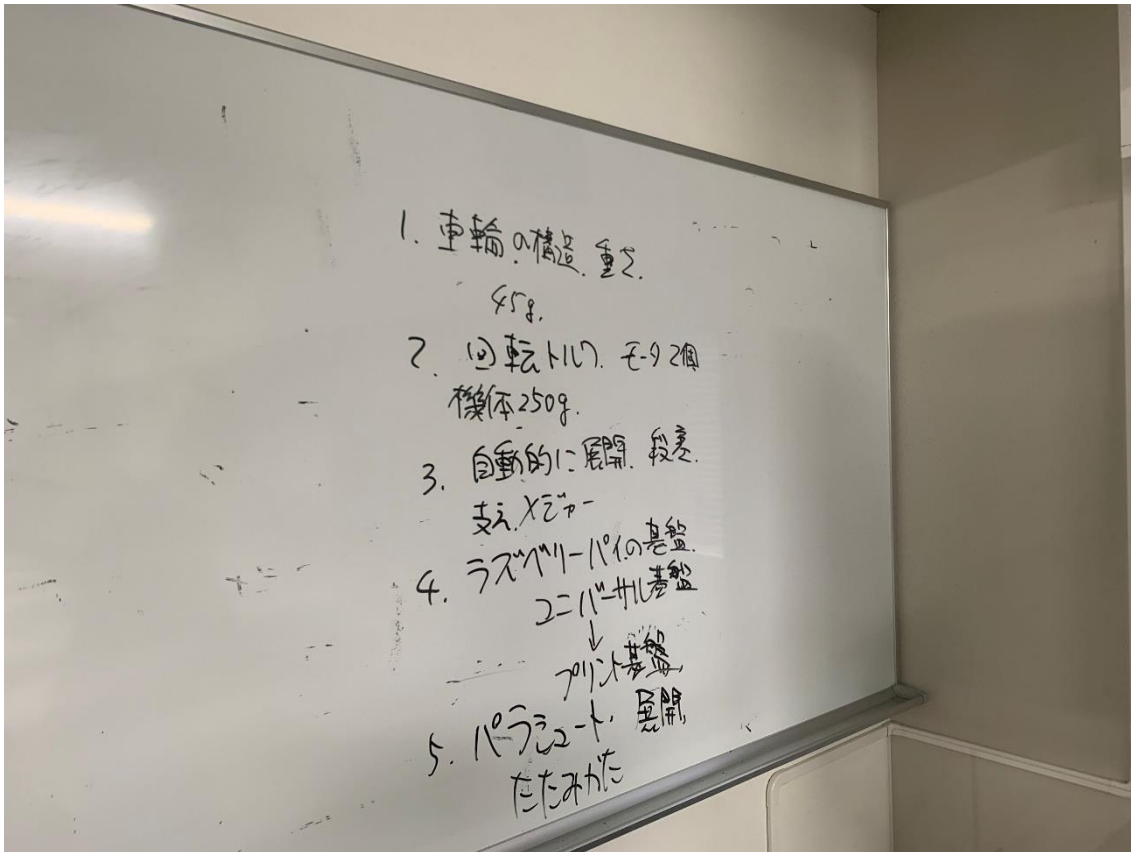 1. 車輪の構造. 重さ.
45g.
2. 回転トルク. モータ2個
機体250g.
3. 自動的に展開. 段差.
支え. メジャー
4. ラズベリーパイの基盤.
ユニバーサル基盤
↓
プリント基盤,
5. パラシュート. 展開,
たたみかた